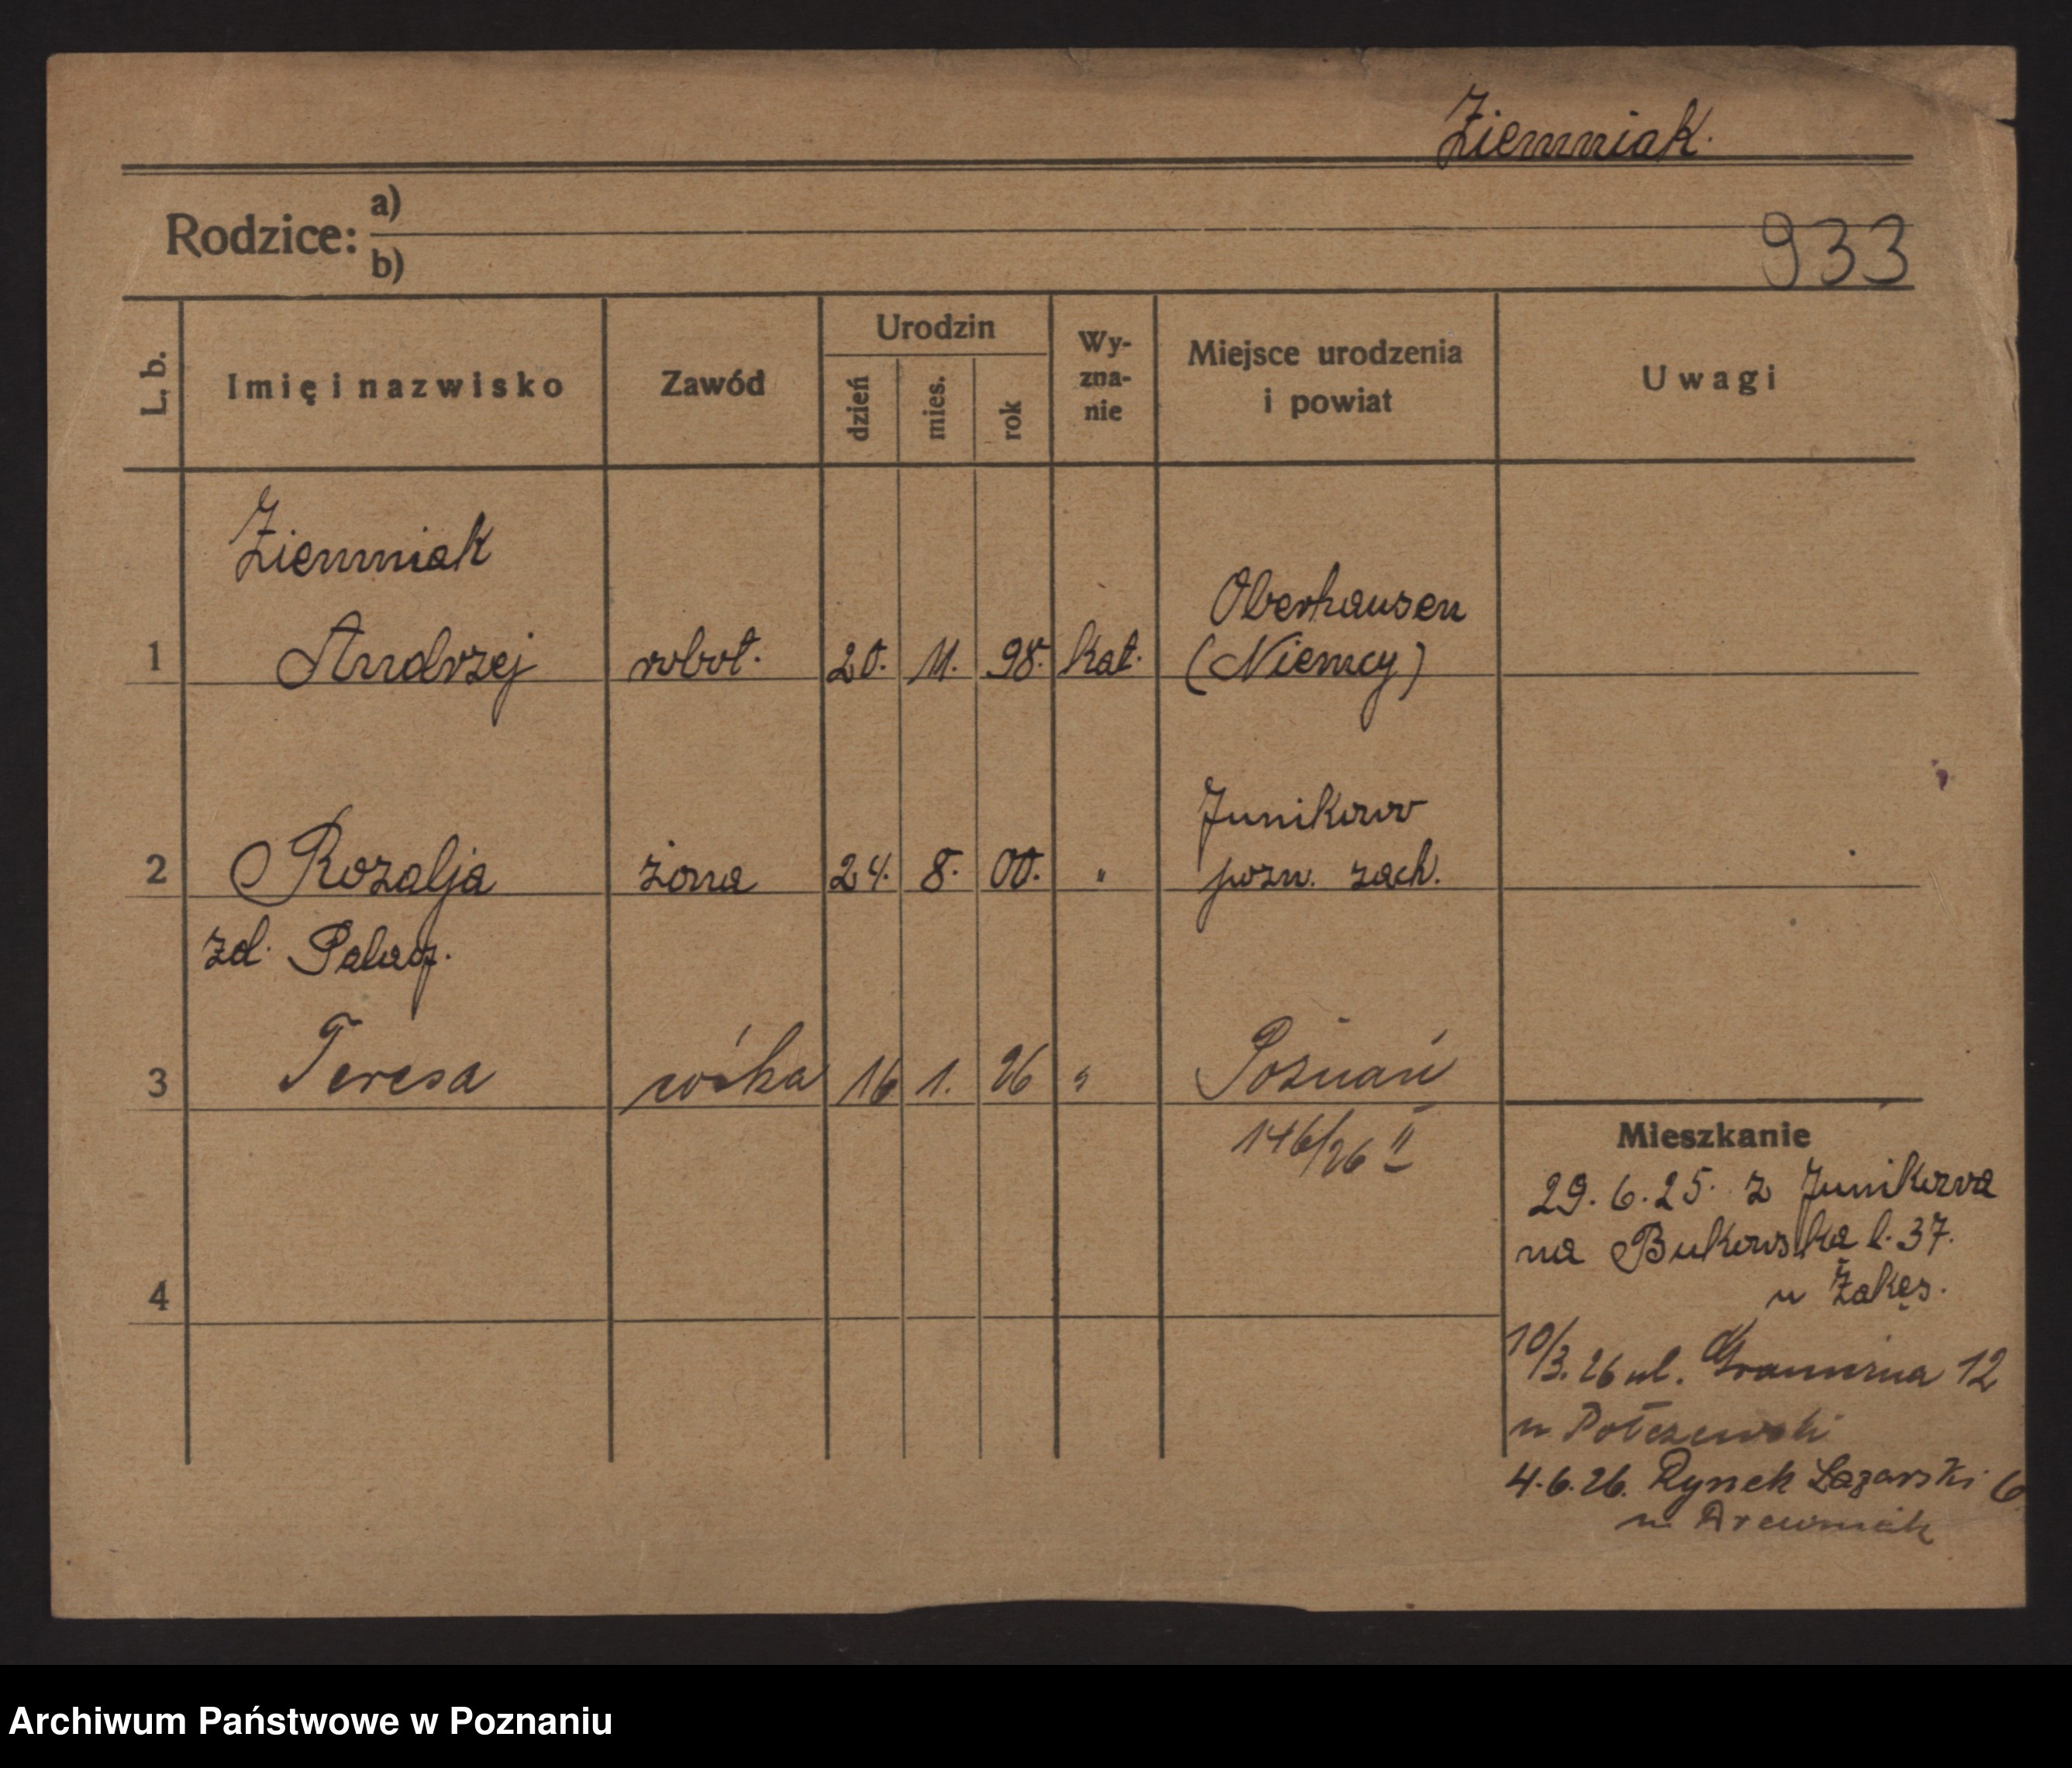 Ziemniak.
Rodzice: a)
b)
933
L. b. Imię i nazwisko Zawód Urodzin dzień mies. rok Wy-zna-nie Miejsce urodzenia i powiat Uwagi
Ziemniak
1 Andrzej robot. 20. 11. 98. kat. Oberhausen (Niemcy)
2 Rozalja żona 24. 8. 00. " Junikowo pozn. zach.
zd. Palacz.
3 Teresa córka 16 1. 26 " Poznań
146/26 II
4
Mieszkanie
29. 6. 25. z Junikowa
na Bukowska l. 37.
u Żakęs.
10/3. 26 ul. Graniczna 12
u
4. 6. 26. Rynek Łazarski 6
u
Archiwum Państwowe w Poznaniu